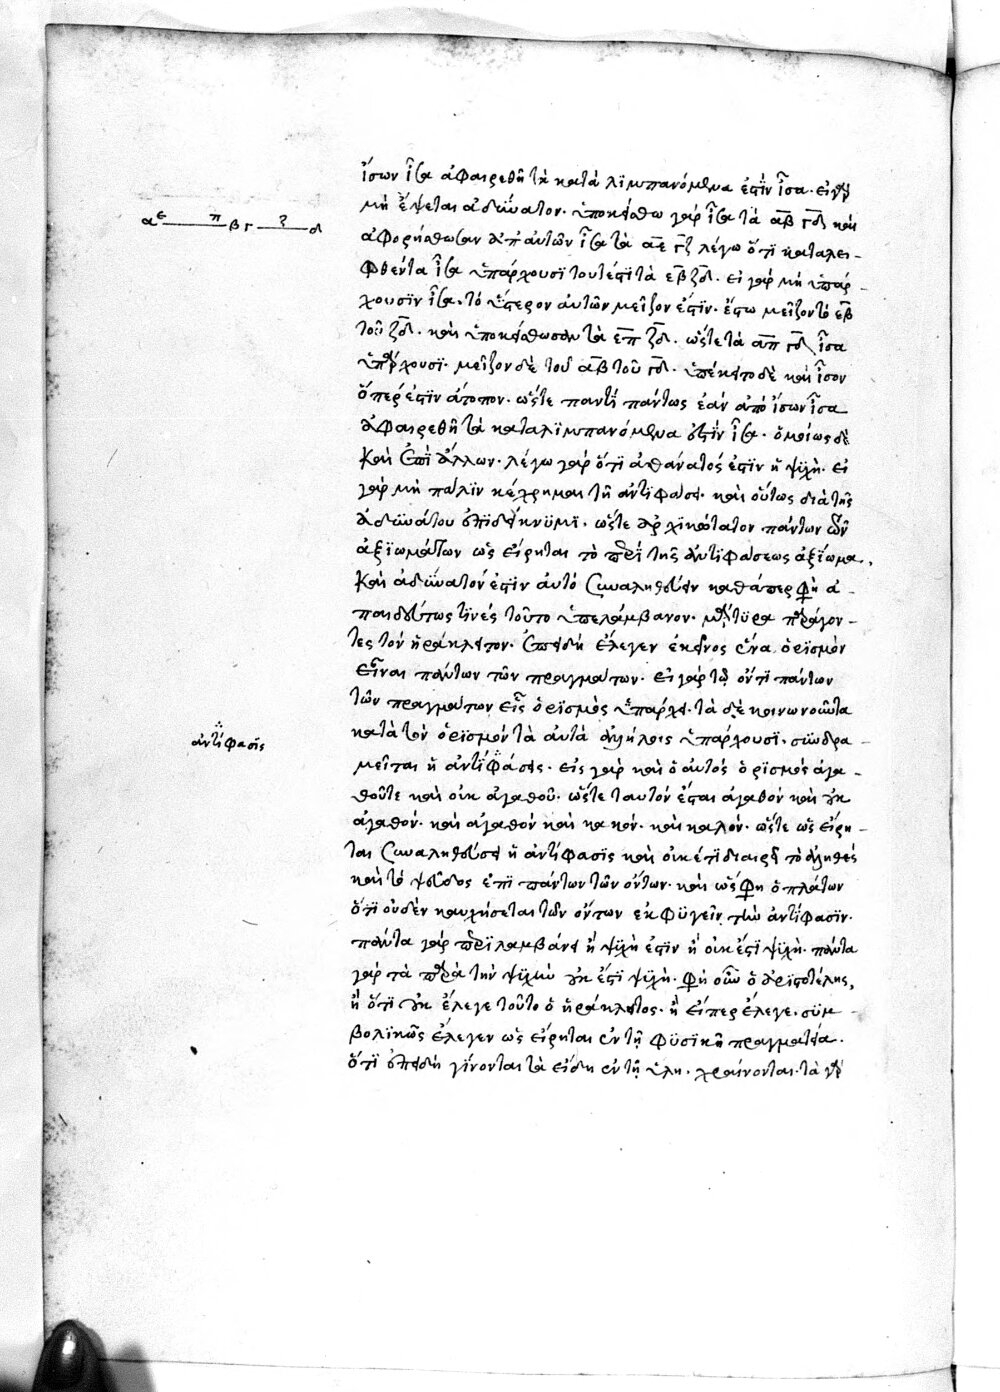 ἴσων ἶσα ἀφαιρεθῆ τὰ καταλϊμπανόμενα ἐστὶν ἶσα. εἰ γὰρ
μὴ ἕψεται ἀδύνατον. ὑποκείσθω γὰρ ἶσα τὰ αβ γδ καὶ
ἀφορήσθωσαν ἀπ' αὐτῶν ἶσα τὰ αε γζ λέγω ὅτι καταλει-
φθέντα ἶσα ὑπάρχουσι τουτέστι τὰ εβ ζδ. εἰ γὰρ μὴ ὑπάρ-
χουσϊν ἶσα. τὸ ἕτερον αὐτῶν μεῖζον ἐστϊν. ἔστω μεῖζον τὸ εβ
τοῦ ζδ. καὶ ὑποκείσθωσαν τὰ επ ζδ. ὥστε τὰ απ γδ ἶσα
ὑπάρχουσϊ. μεῖζον δὲ τοῦ αβ τοῦ γδ. ὑπέκειτο δὲ καὶ ἶσον
ὅπερ ἐστϊν ἄτοπον. ὥστε παντὶ πάντως ἐὰν ἀπὸ ἴσων ἶσα
ἀφαιρεθῆ τὰ καταλϊμπανόμενα ἐστὶν ἶσα. ὁμοίως δὲ
καὶ ἐπὶ ἄλλων. λέγω γὰρ ὅτι ἀθάνατός ἐστϊν ἡ ψϋχή. εἰ
γὰρ μὴ παλϊν κέχρημαι τῆ ἀντϊφάσει. καὶ οὕτως διὰ τῆς
ἀδυνάτου ἐπϊδείκνϋμϊ. ὥστε ἀρχϊκώτατον πάντων τῶν
ἀξϊωμάτων ὡς εἴρηται τὸ περὶ τῆς ἀντϊφάσεως ἀξίωμα.
καὶ ἀδύνατόν ἐστϊν αὐτὸ συναληθεύειν καθάπερ φησὶ ἀ-
παιδεύτως τϊνές τοῦτο ὑπελάμβανον. μάρτϋρα παράγον-
τες τὸν ἡράκλειτον. ἐπειδὴ ἔλεγεν ἐκεῖνος ἕνα ὁρϊσμὸν
εἶναι πάντων τῶν πραγμάτων. εἰ γὰρ τῶ ὄντϊ πάντων
τῶν πραγμάτων εἷς ὁρϊσμὸς ὑπάρχει. τὰ δὲ κοινωνοῦντα
κατὰ τὸν ὁρϊσμὸν τὰ αὐτὰ ἀλλήλοις ὑπάρχουσϊ. συνδρα-
μεῖται ἡ ἀντϊφάσεις. εἷς γὰρ καὶ ὁ αὐτὸς ὁρϊσμὸς ἀγα-
θοῦ τε καὶ οὐκ ἀγαθοῦ. ὥστε ταυτὸν ἔσται ἀγαθὸν καὶ οὐκ
ἀγαθόν. καὶ ἀγαθὸν καὶ κακόν. καὶ καλόν. ὥστε ὡς εἴρη-
ται συναληθεύσει ἡ ἀντίφασϊς καὶ οὐκέτϊ διαιρεῖ τὸ ἀληθὲς
καὶ τὸ ψεῦδος ἐπὶ πάντων τῶν ὄντων. καὶ ὥς φησι ὁ πλάτων
ὅτϊ οὐδὲν καυχήσεται τῶν ὄντων ἐκφϋγεῖν τὴν ἀντίφασϊν.
πάντα γὰρ περϊλαμβάνει ἢ ψϋχὴ ἐστϊν ἢ οὐκ ἔστϊ ψϋχή. πάντα
γὰρ τὰ παρὰ τὴν ψϋχὴν οὐκ ἔστϊ ψϋχή. φησὶ οὖν ὁ ἀρϊστοτέλης,
ἢ ὅτϊ οὐκ ἔλεγε τοῦτο ὁ ἡράκλειτος. ἢ εἴπερ ἔλεγε. σϋμ-
βολϊκῶς ἔλεγεν ὡς εἴρηται ἐν τῆ φϋσϊκῆ πραγματεία.
ὅτϊ ἐπειδὴ γίνονται τὰ εἴδη ἐν τῆ ὕλη. χραίνονται. τὰ γὰρ
α ε π β γ ζ δ
ἀντίφασϊς